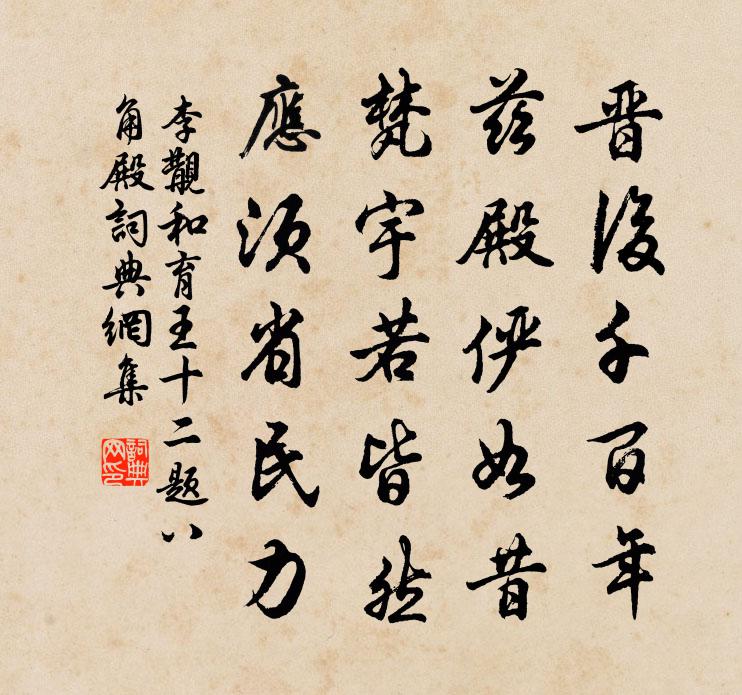 晋後千百年
茲殿儼如昔
梵宇若皆然
應須省民力
李覯和育王十二题八
角殿詞典網集
詞典
网印